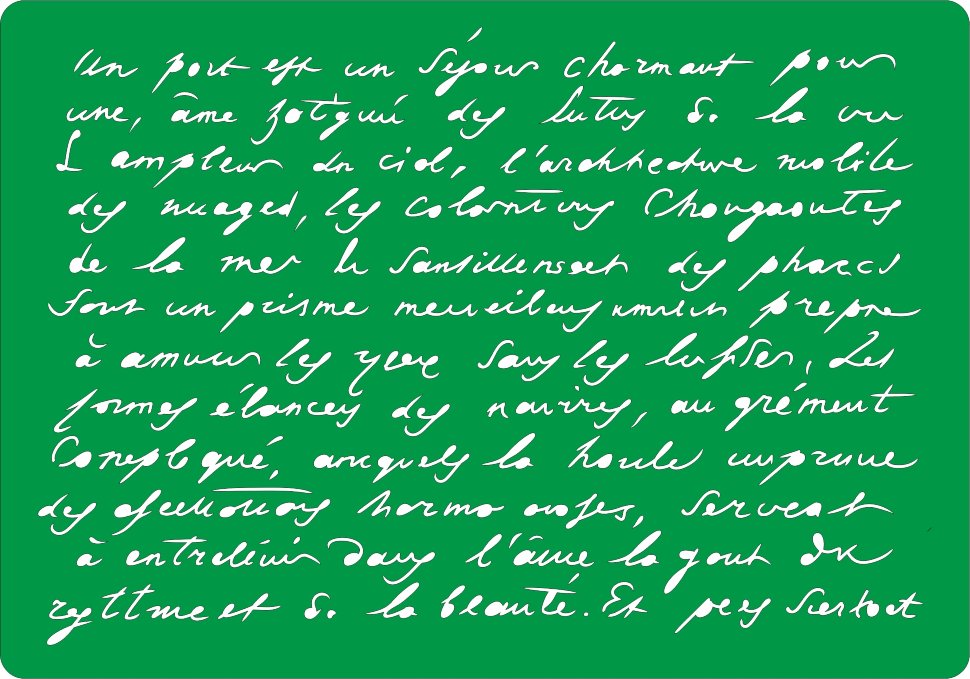 Un port est un séjour charmant pour
une, âme fatiguí des luttes de la vu
L ampleur du ciel, l'architecture mobile
des nuages, les colorations Changeantes
de la mer le Santillement des phares
Sont un prisme merveilleux propre
à amuser les yeux Sans les lasser, Les
formes élancées des navires, au grément
Compliqué, auxquels la houle imprime
des oscillations harmonieuses, Servent
à entretenir dans l'âme la gout du
ryttme et de la beauté. Et puis Surtout